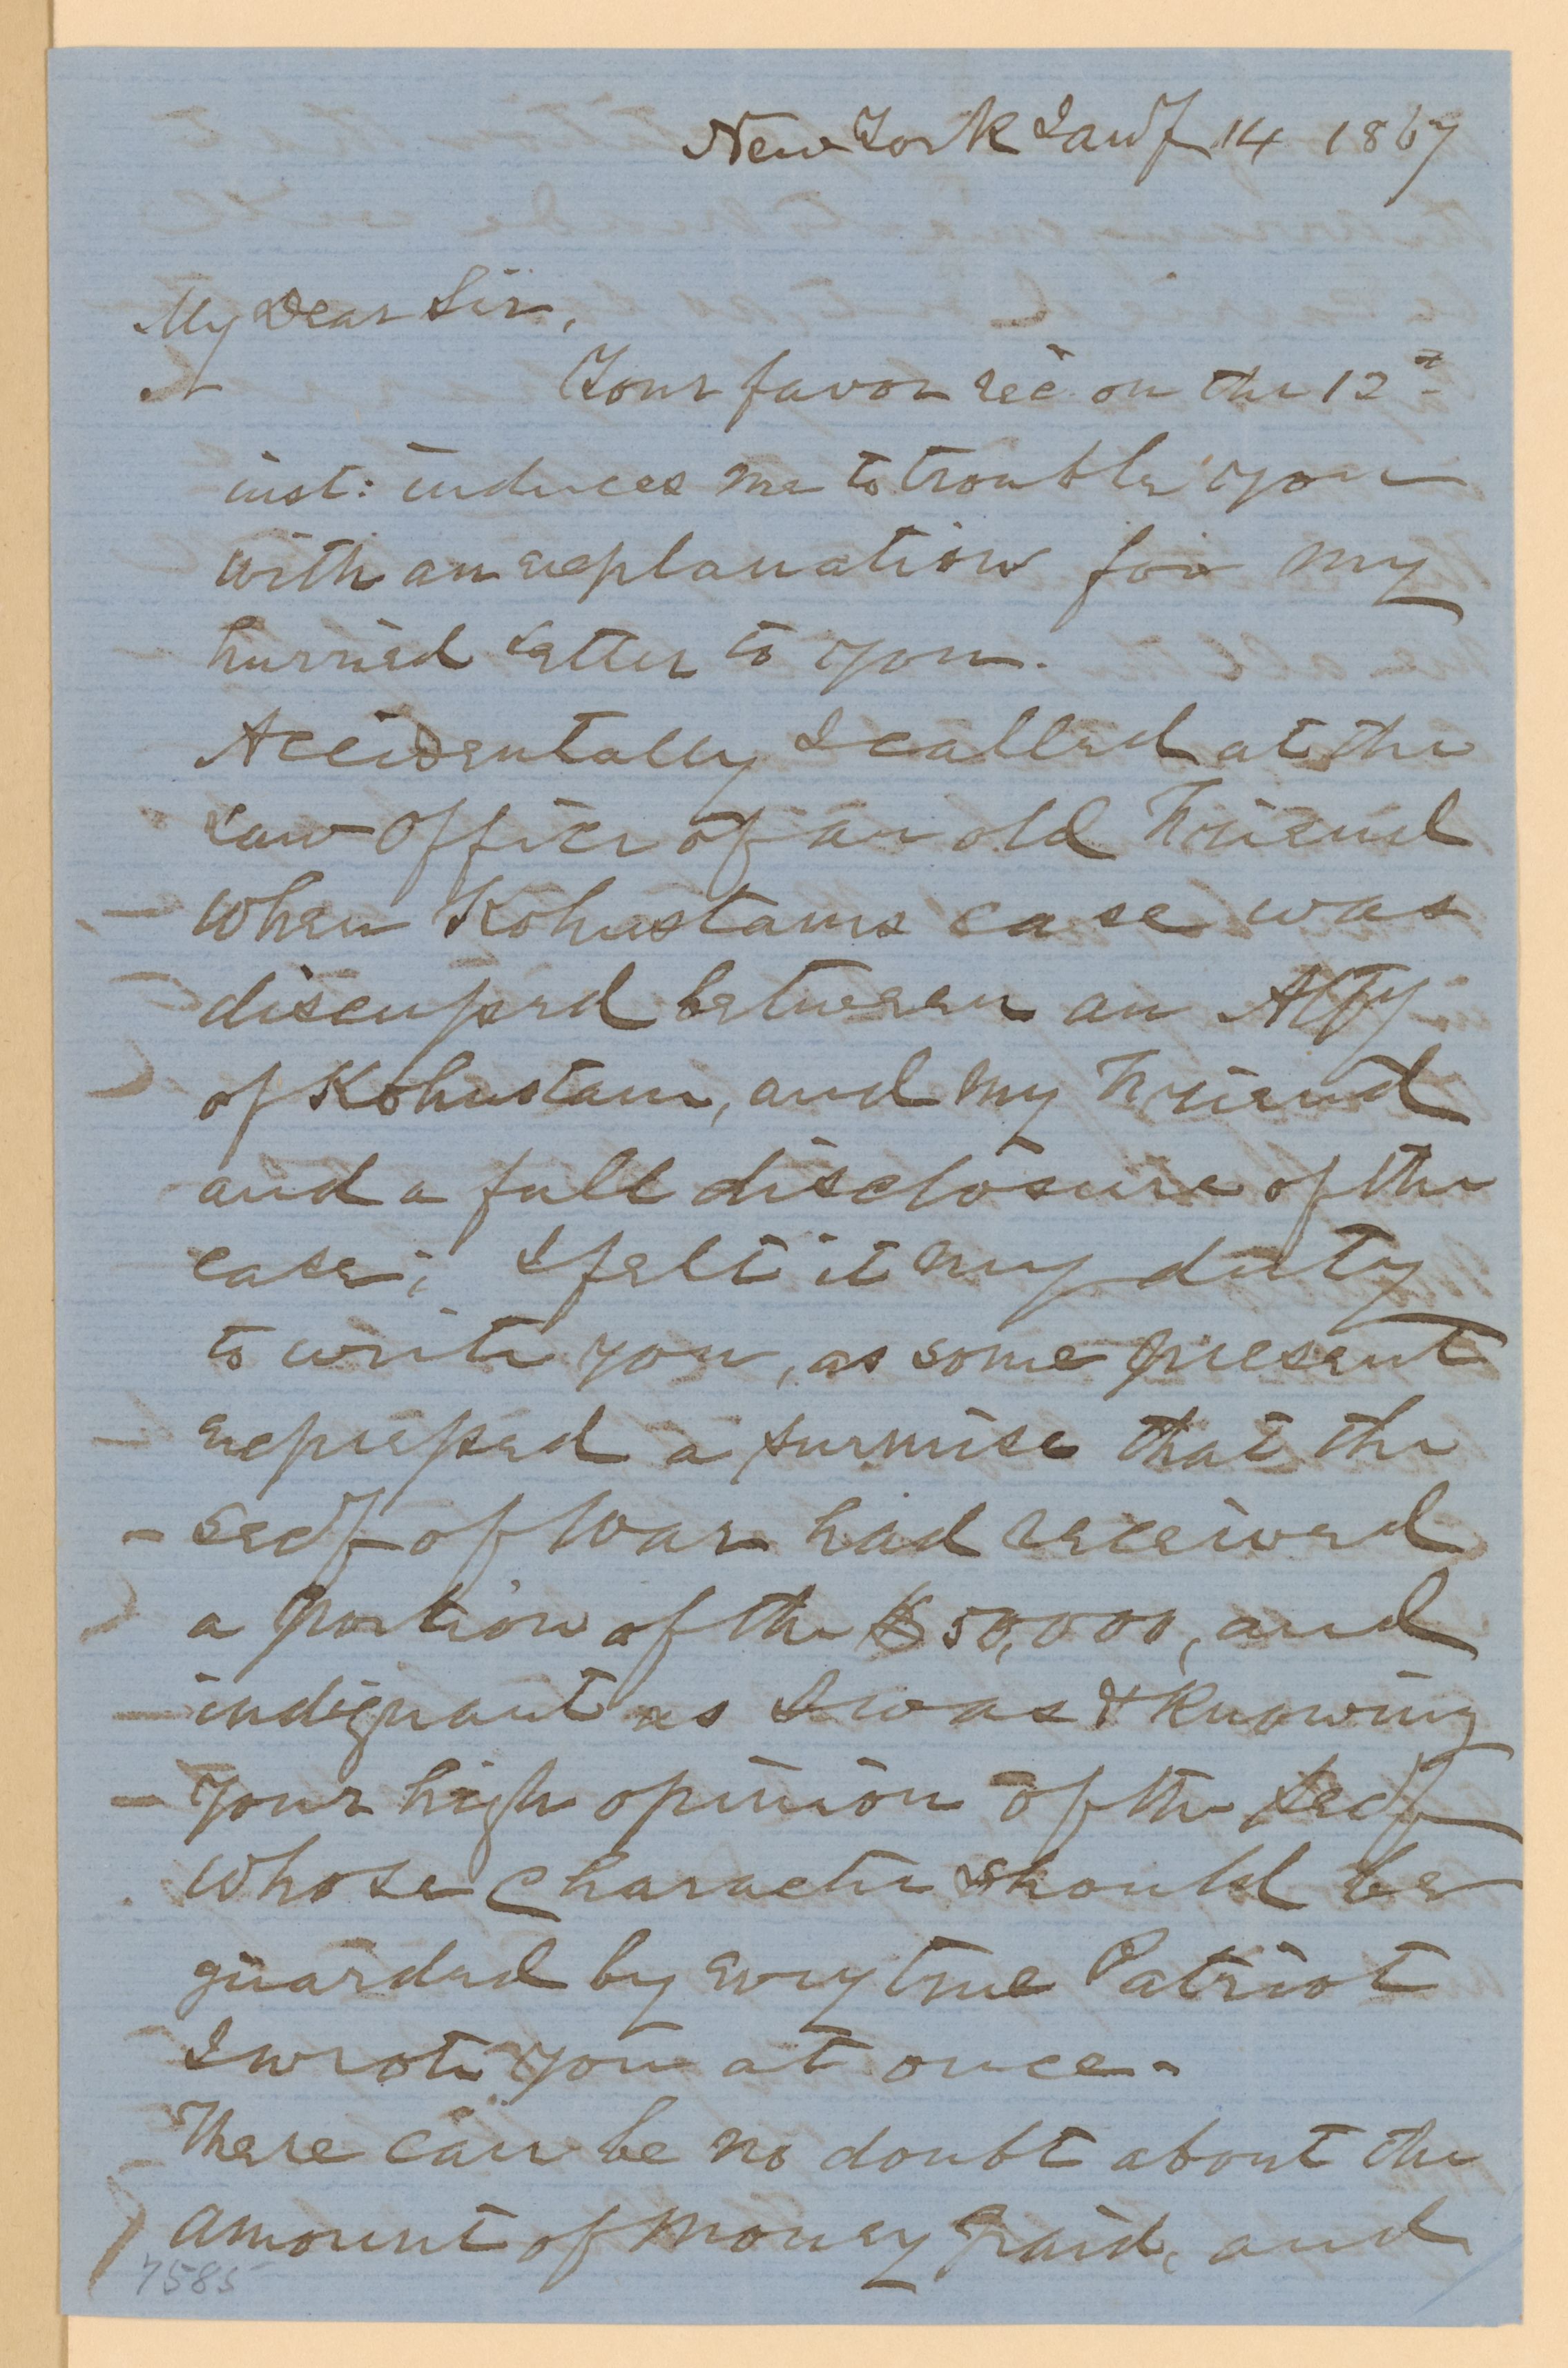 New York Jany 14 1867
My Dear Sir,
Your favor rec. on the 12th
inst: induces me to trouble you
with an explanation for my
hurried letter to you.
Accidentally I called at the
Law Office of an old Friend
when Kohnstams case was
discussed between an Atty
of Kohnstam, and my Friend
and a full disclosure of the
case; I felt it my duty
to write you, as some present
expressed a surmise that the
Secy of War had received
a portion of the $50,000, and
indignant as I was & knowing
your high opinion of the Secy
whose character should be
guarded by every true Patriot
I wrote you at once.
There can be no doubt about the
amount of money paid, and
7585